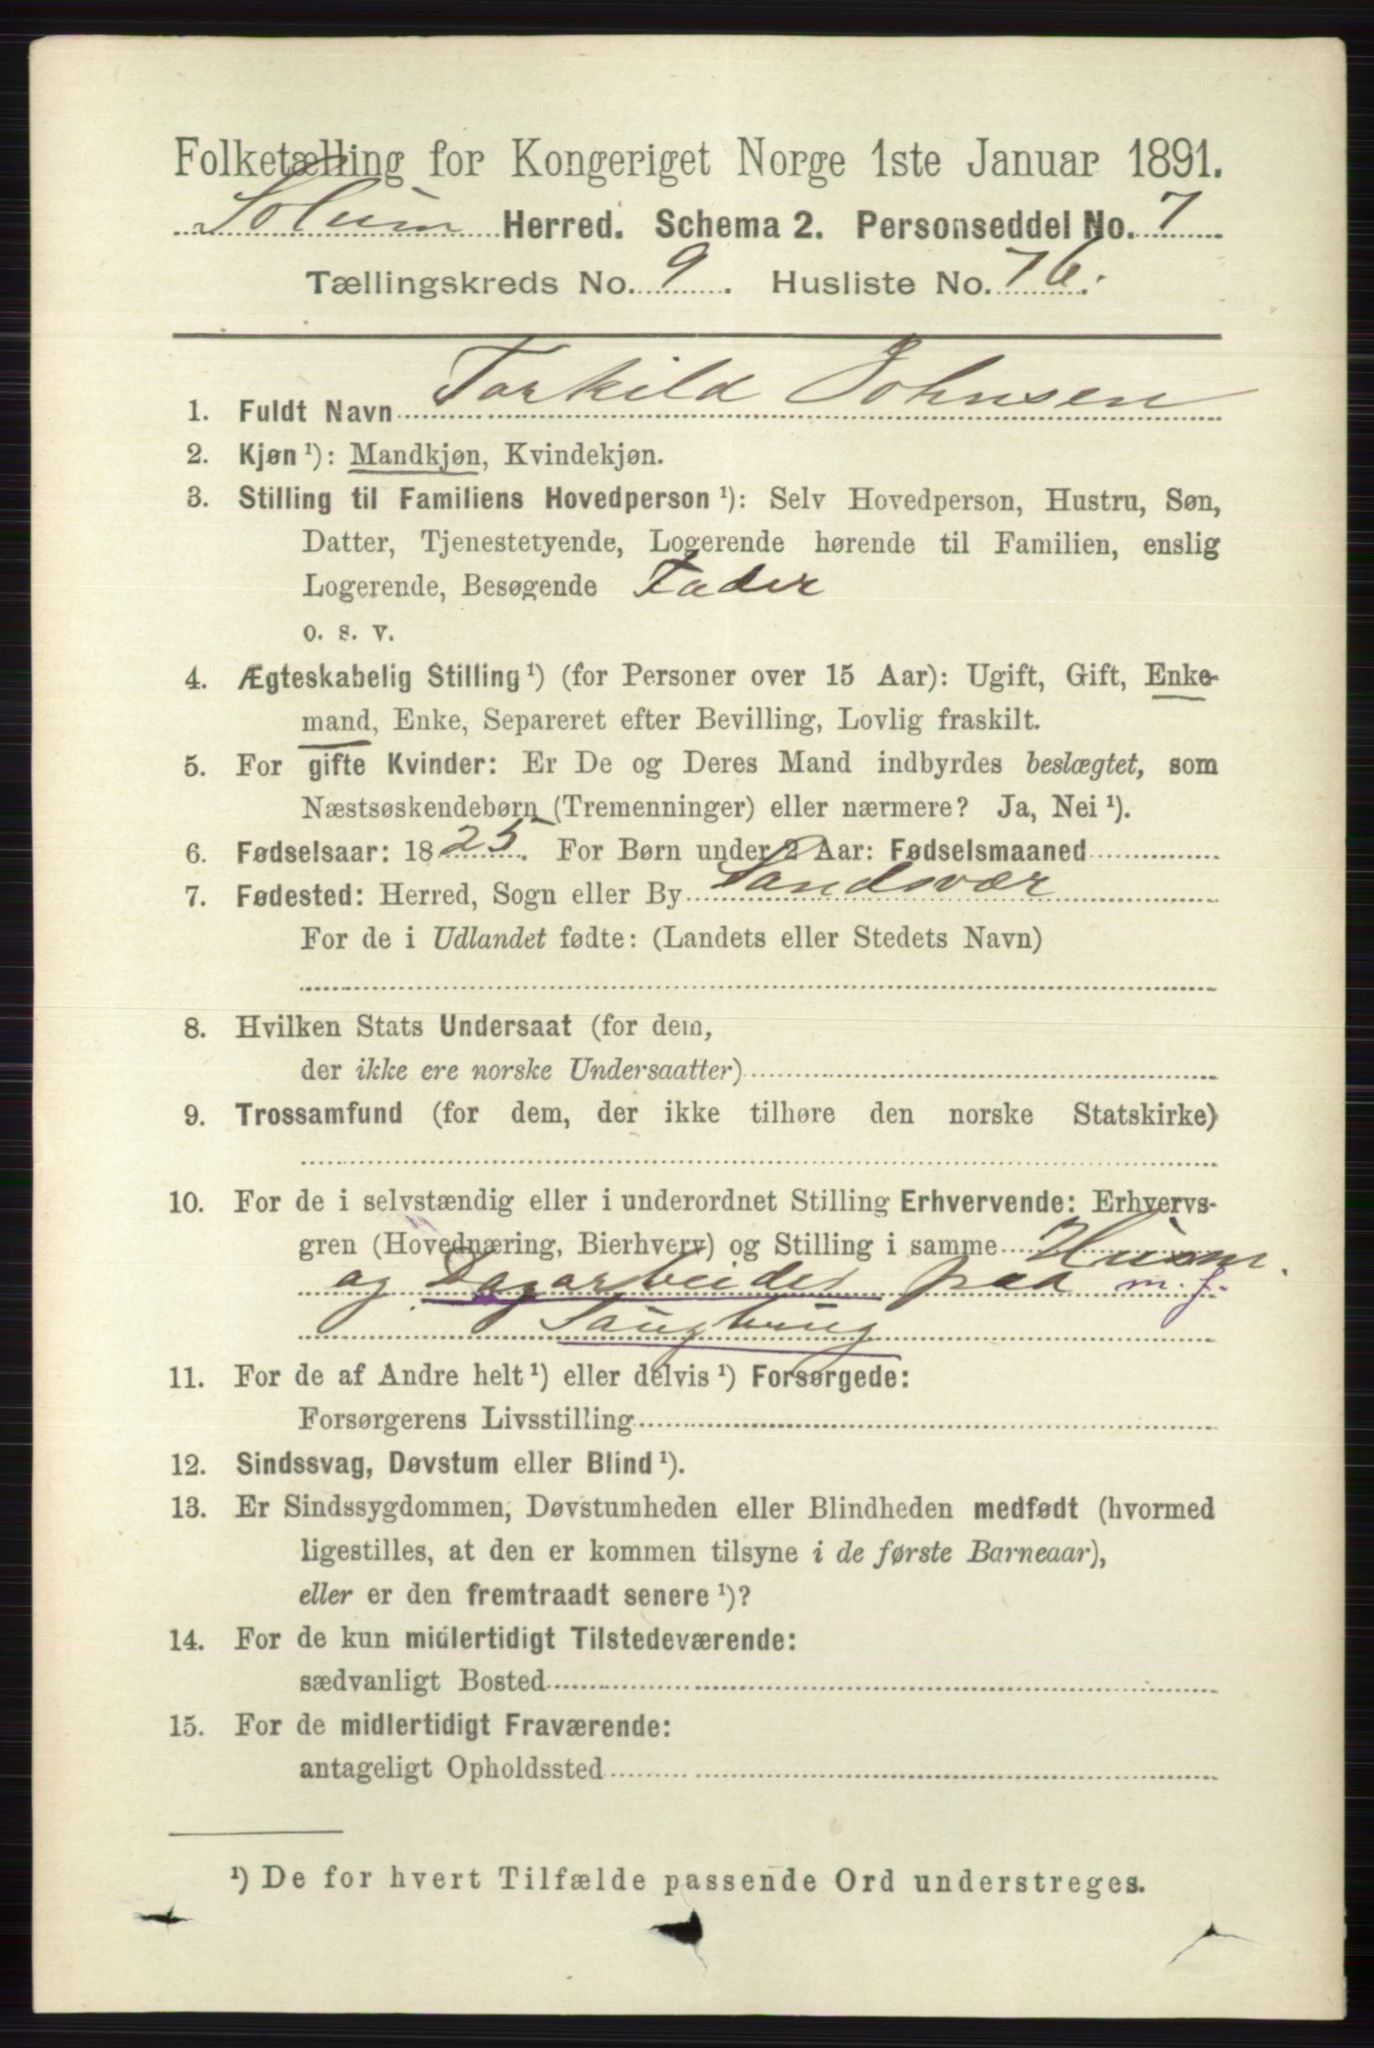 Folketælling for Kongeriget Norge 1ste Januar 1891.
Solum Herred. Schema 2. Personseddel No. 7
Tællingskreds No. 9. Husliste No. 76.
1. Fuldt Navn Torkild Johnsen
2. Kjøn ¹): Mandkjøn, Kvindekjøn.
3. Stilling til Familiens Hovedperson ¹): Selv Hovedperson, Hustru, Søn,
Datter, Tjenestetyende, Logerende hørende til Familien, enslig
Logerende, Besøgende Fader
o. s. v.
4. Ægteskabelig Stilling ¹) (for Personer over 15 Aar): Ugift, Gift, Enke-
mand, Enke, Separeret efter Bevilling, Lovlig fraskilt.
5. For gifte Kvinder: Er De og Deres Mand indbyrdes beslægtet, som
Næstsøskendebørn (Tremenninger) eller nærmere? Ja, Nei ¹).
6. Fødselsaar: 1825. For Børn under 2 Aar: Fødselsmaaned
7. Fødested: Herred, Sogn eller By Sandsvær
For de i Udlandet fødte: (Landets eller Stedets Navn)
8. Hvilken Stats Undersaat (for dem,
der ikke ere norske Undersaatter)
9. Trossamfund (for dem, der ikke tilhøre den norske Statskirke)
10. For de i selvstændig eller i underordnet Stilling Erhvervende: Erhvervs-
gren (Hovednæring, Bierhverv) og Stilling i samme Husm.
og Dagarbeider paa m. j.
Saugbrug
11. For de af Andre helt ¹) eller delvis ¹) Forsørgede:
Forsørgerens Livsstilling
12. Sindssvag, Døvstum eller Blind ¹).
13. Er Sindssygdommen, Døvstumheden eller Blindheden medfødt (hvormed
ligestilles, at den er kommen tilsyne i de første Barneaar),
eller er den fremtraadt senere ¹)?
14. For de kun midlertidigt Tilstedeværende:
sædvanligt Bosted
15. For de midlertidigt Fraværende:
antageligt Opholdssted
¹) De for hvert Tilfælde passende Ord understreges.